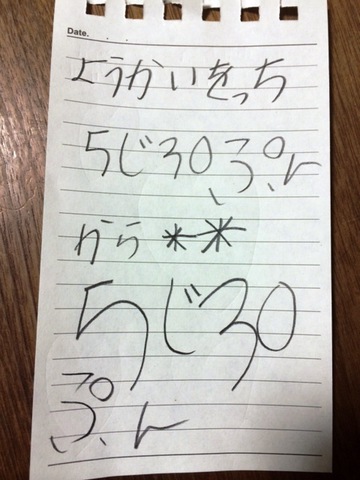 Date.
ようかいをっち
5じ30、ぷん
から **
5じ30
ぷん